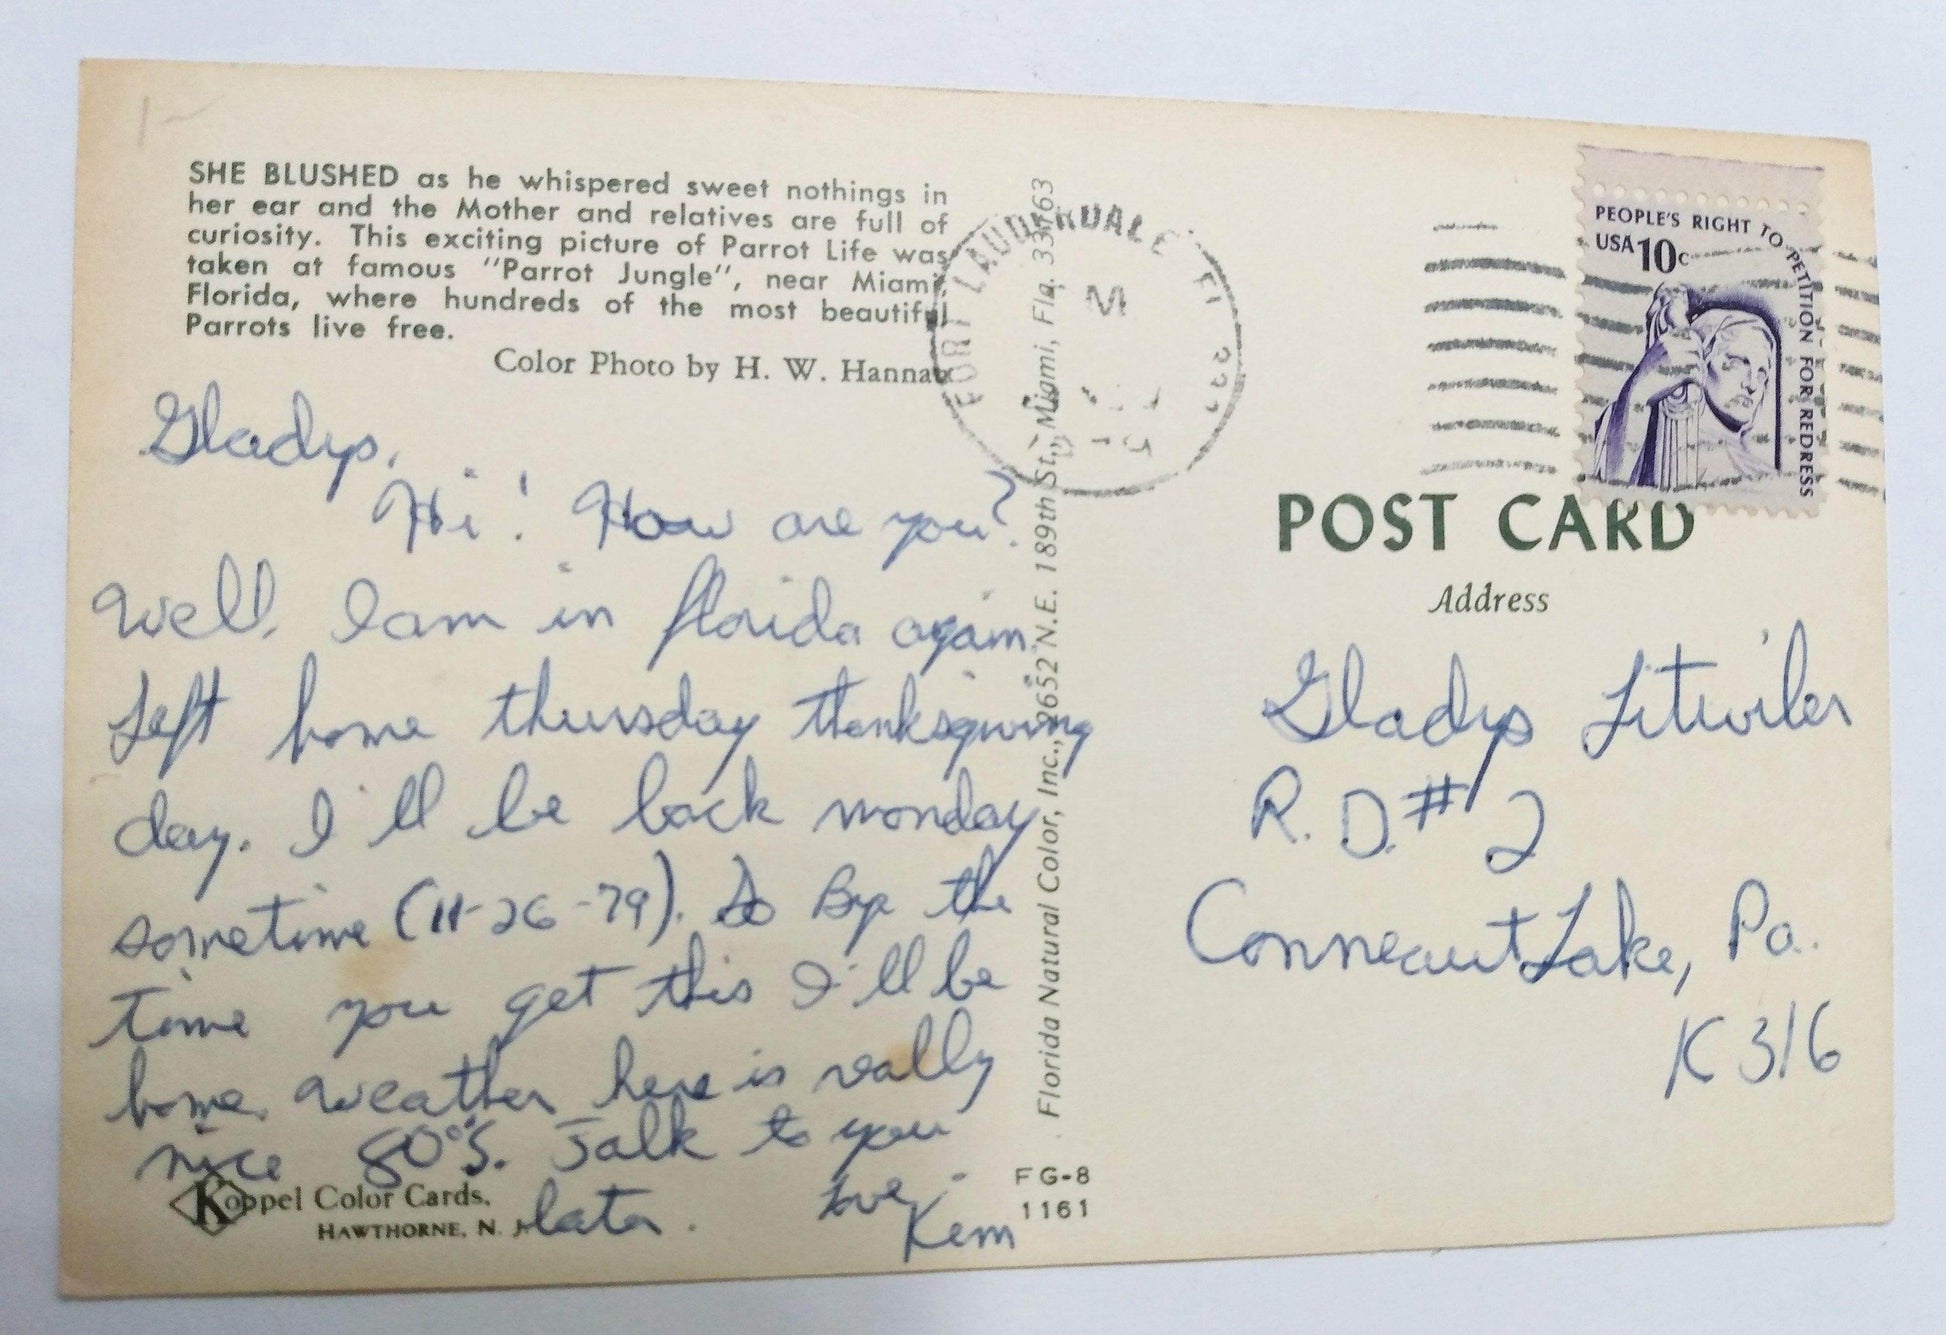 SHE BLUSHED as he whispered sweet nothings in
her ear and the Mother and relatives are full of
curiosity. This exciting picture of Parrot Life was
taken at famous "Parrot Jungle", near Miami,
Florida, where hundreds of the most beautiful
Parrots live free.
Color Photo by H. W. Hannau
Gladys,
Hi! How are you?
Well, I am in florida again.
Left home thursday thanksgiving
day. I'll be back monday
sometime (11-26-79). So Bye the
time you get this I'll be
home. Weather here is really
nice 80°'s. Talk to you
later. Love,
Kem
Koppel Color Cards.
HAWTHORNE, N. J.
Florida Natural Color, Inc., 2652 N.E. 189th St., Miami, Fla. 33163
FG-8
1161
FORT LAUDERDALE FL
M
PEOPLE'S RIGHT TO PETITION FOR REDRESS
USA 10c
POST CARD
Address
Gladys Litwiler
R. D. #2
Conneaut Lake, Pa.
K 316